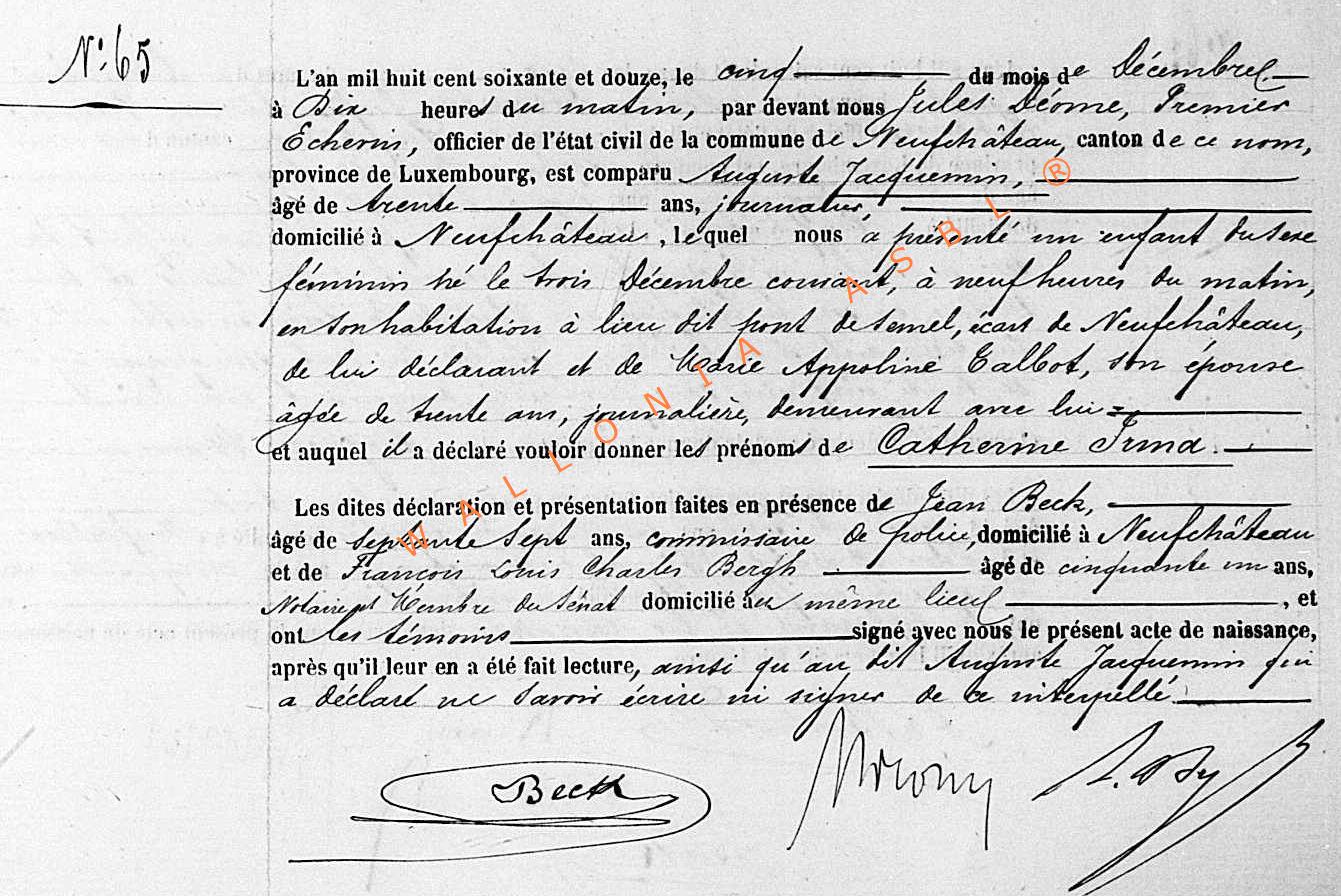 N° 65
L'an mil huit cent soixante et douze, le cinq du mois de Décembre
à Dix heures du matin, par devant nous Jules Déome, Premier
Echevin, officier de l'état civil de la commune de Neufchâteau, canton de ce nom,
province de Luxembourg, est comparu Auguste Jacquemin,
âgé de trente ans, journalier,
domicilié à Neufchâteau, lequel nous a présenté un enfant du sexe
féminin né le trois Décembre courant, à neuf heures du matin,
en son habitation à lieu dit pont de Semel, écart de Neufchâteau,
de lui déclarant et de Marie Appoline Talbot, son épouse
âgée de trente ans, journalière, demeurant avec lui =
et auquel il a déclaré vouloir donner les prénoms de Catherine Irma.
Les dites déclaration et présentation faites en présence de Jean Beck,
âgé de septante sept ans, commissaire de police, domicilié à Neufchâteau
et de François Louis Charles Bergh âgé de cinquante un ans,
Notaire et Membre du Sénat domicilié au même lieu, et
ont les témoins signé avec nous le présent acte de naissance,
après qu'il leur en a été fait lecture, ainsi qu'au dit Auguste Jacquemin qui
a déclaré ne savoir écrire ni signer de ce interpellé.
Beck
WALLONIA ASBL ®